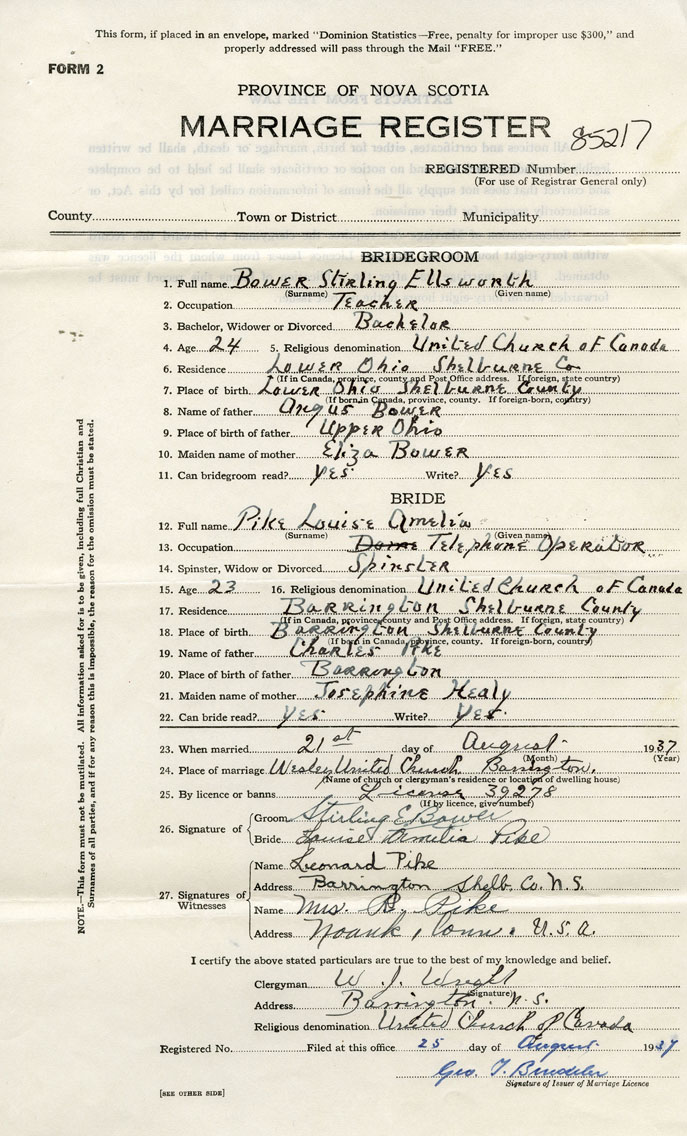 This form, if placed in an envelope, marked "Dominion Statistics—Free, penalty for improper use $300," and
properly addressed will pass through the Mail "FREE."
FORM 2
PROVINCE OF NOVA SCOTIA
MARRIAGE REGISTER 85217
REGISTERED Number
(For use of Registrar General only)
County Town or District Municipality
BRIDEGROOM
1. Full name Bower Stirling Ellsworth
(Surname) (Given name)
2. Occupation Teacher
3. Bachelor, Widower or Divorced Bachelor
4. Age 24 5. Religious denomination United Church of Canada
6. Residence Lower Ohio Shelburne Co
(If in Canada, province, county and Post Office address. If foreign, state country)
7. Place of birth Lower Ohio Shelburne County
(If born in Canada, province, county. If foreign-born, country)
8. Name of father Angus Bower
9. Place of birth of father Upper Ohio
10. Maiden name of mother Eliza Bower
11. Can bridegroom read? Yes Write? Yes
BRIDE
12. Full name Pike Louise Amelia
(Surname) (Given name)
13. Occupation Telephone Operator
14. Spinster, Widow or Divorced Spinster
15. Age 23 16. Religious denomination United Church of Canada
17. Residence Barrington Shelburne County
(If in Canada, province, county and Post Office address. If foreign, state country)
18. Place of birth Barrington Shelburne County
(If born in Canada, province, county. If foreign-born, country)
19. Name of father Charles Pike
20. Place of birth of father Barrington
21. Maiden name of mother Josephine Healy
22. Can bride read? Yes Write? Yes
23. When married 21st day of August 1937
(Month) (Year)
24. Place of marriage Wesley United Church Barrington.
(Name of church or clergyman's residence or location of dwelling house)
25. By licence or banns License 39278
(If by licence, give number)
26. Signature of Groom Stirling E Bower
Bride Louise Amelia Pike
27. Signatures of Witnesses
Name Leonard Pike
Address Barrington Shelb. Co. N.S.
Name Mrs. B. Pike
Address Noank, Conn. U.S.A.
I certify the above stated particulars are true to the best of my knowledge and belief.
Clergyman W. J. Wright
(Signature)
Address Barrington. N.S.
Religious denomination United Church of Canada
Registered No. Filed at this office 25 day of August 1937
Geo. T.
Signature of Issuer of Marriage Licence
[SEE OTHER SIDE]
NOTE.—This form must not be mutilated. All information asked for is to be given, including full Christian and
Surnames of all parties, and if for any reason this is impossible, the reason for the omission must be stated.